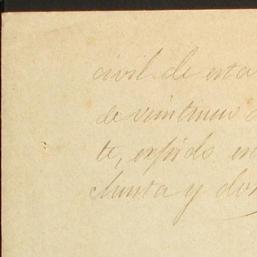 civil de esta
de veintinueve
te, expido en
chenta y dos